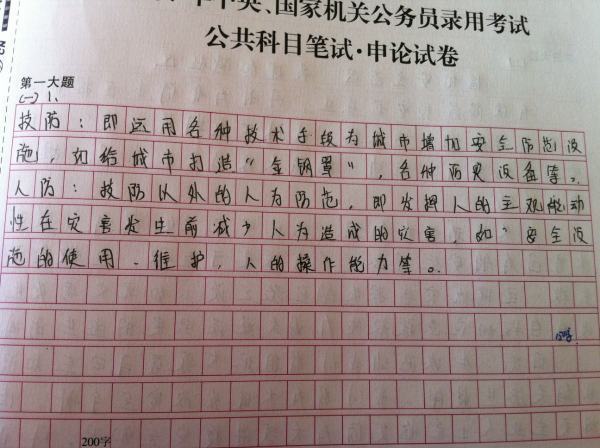 中央、国家机关公务员录用考试
公共科目笔试·申论试卷
第一大题
(一) 1、
技防：即运用各种技术手段为城市增加安全防范设
施，如给城市打造“金钢罩”，各种预灾设备等。
人防：技防以外的人为防范，即发挥人的主观能动
性在灾害发生前减少人为造成的灾害，如“安全设
施的使用、维护，人的操作能力等。
200字